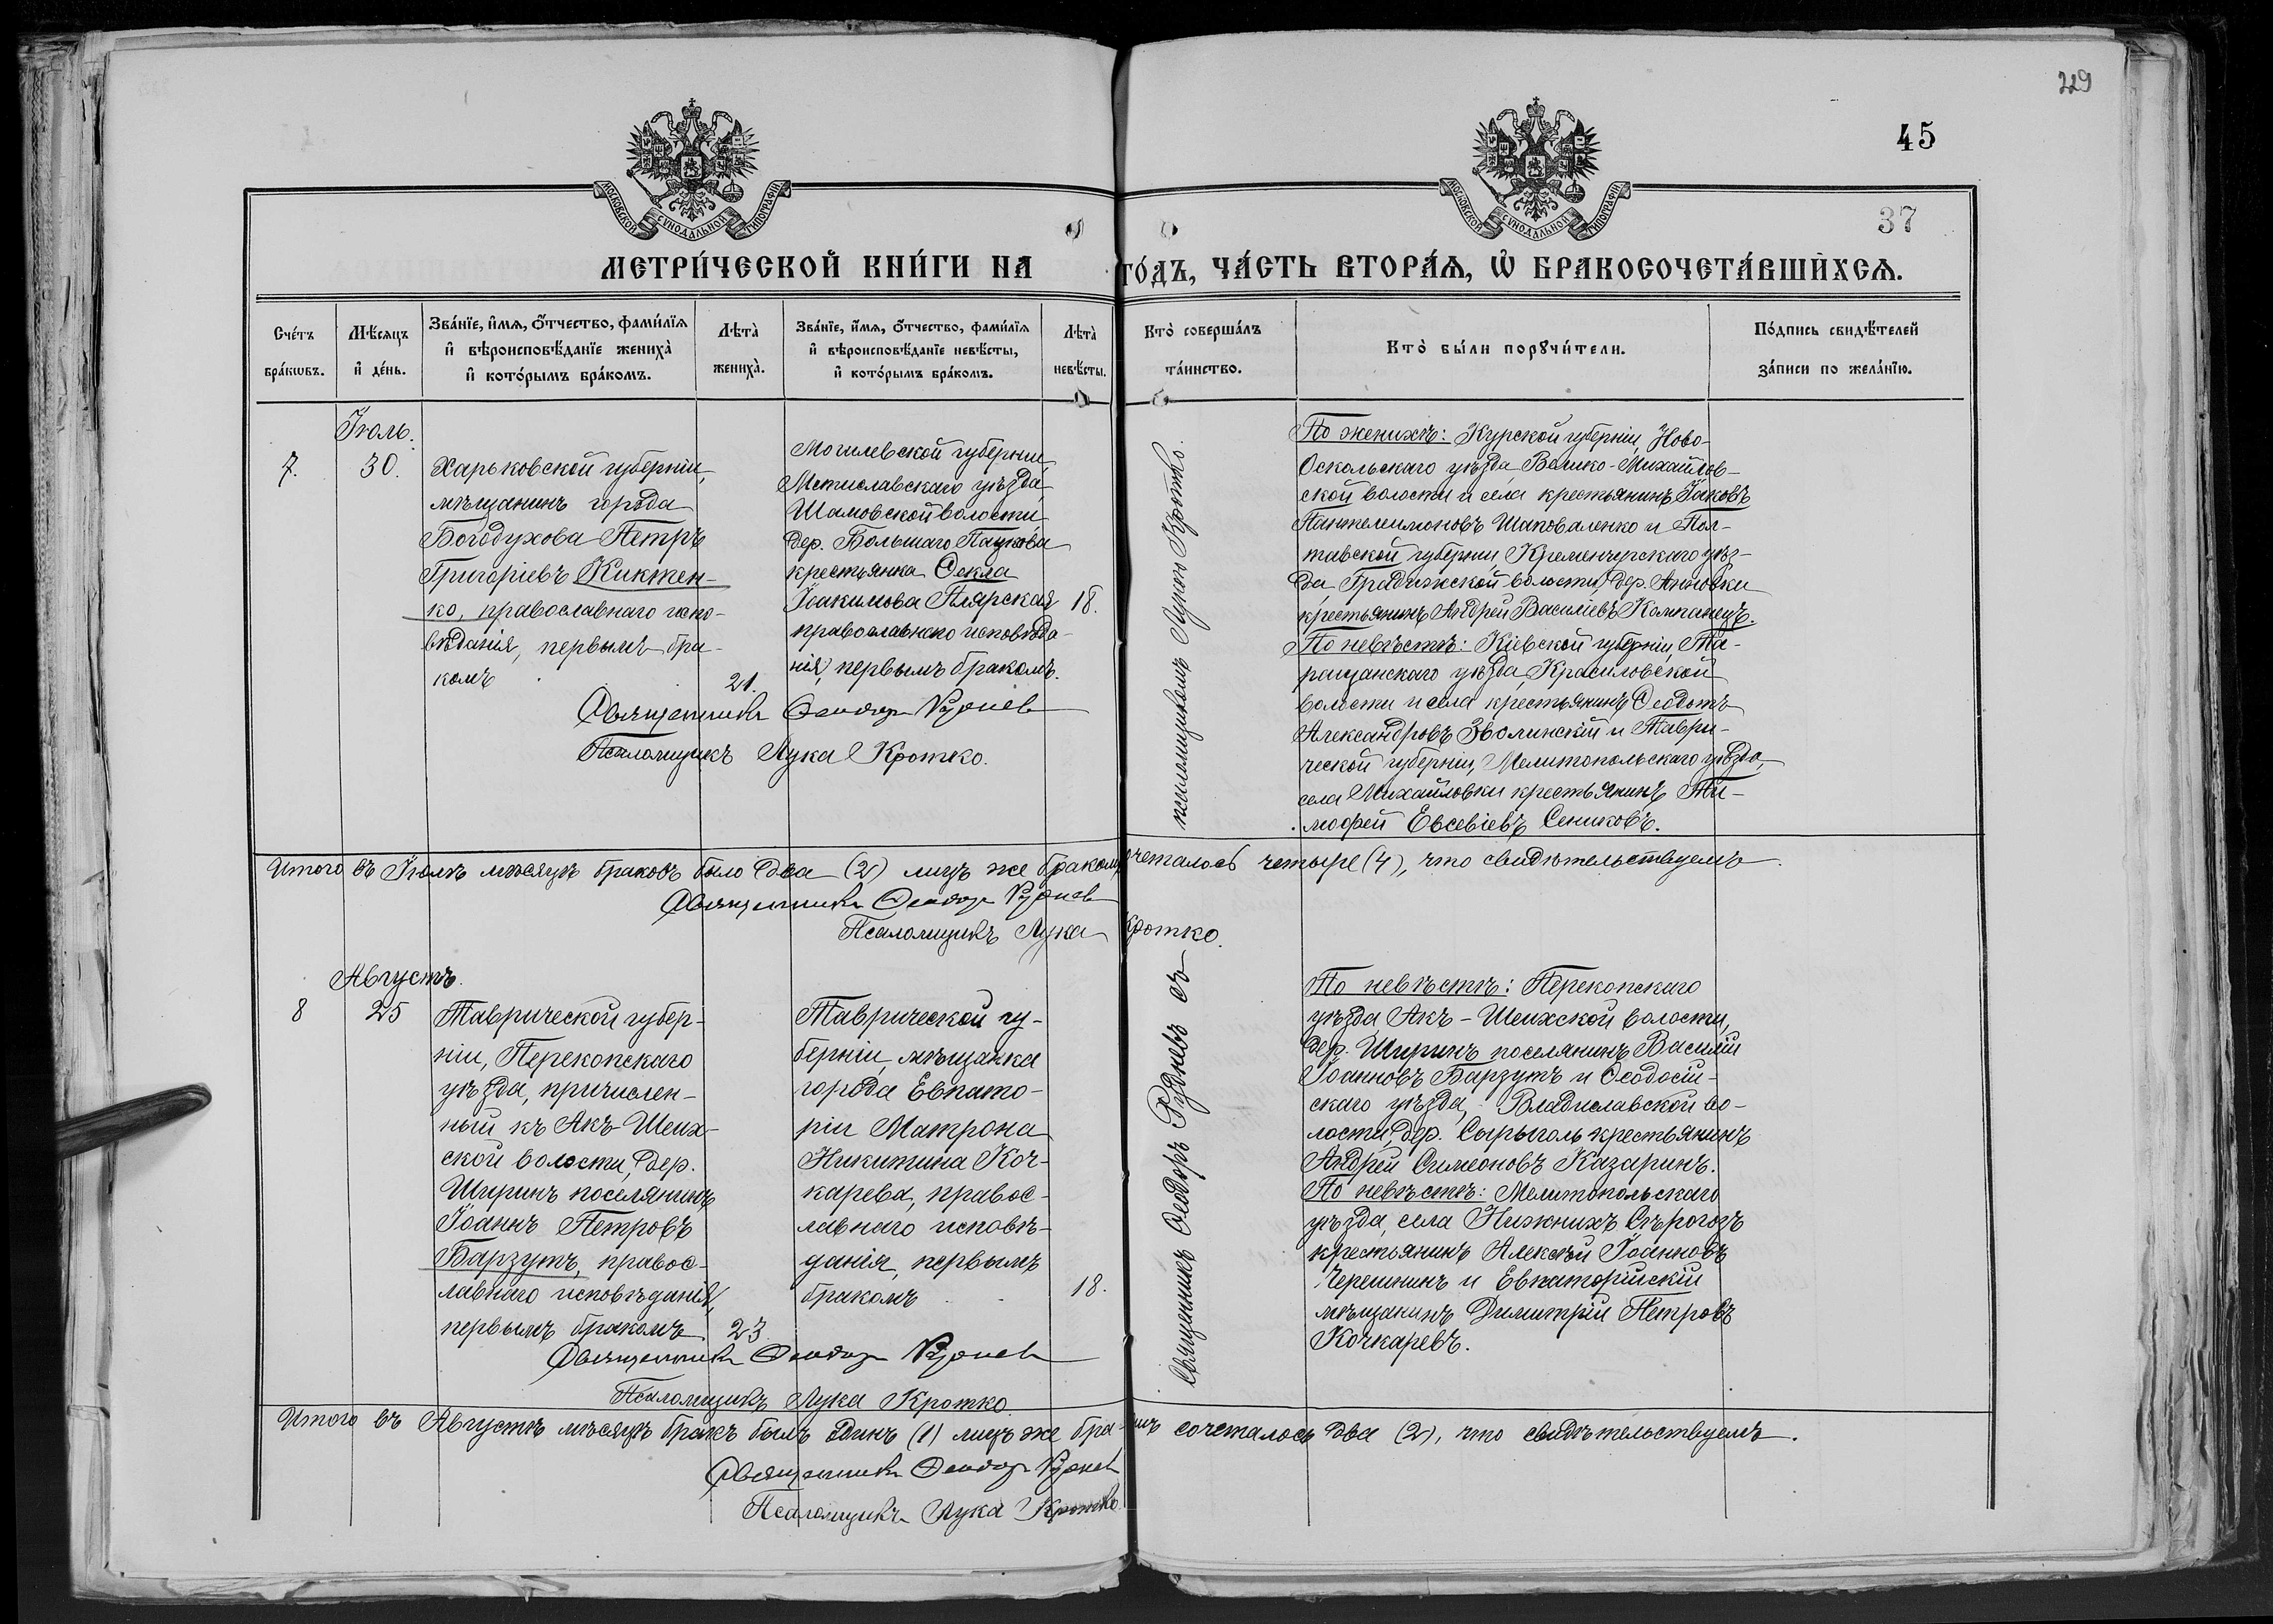 229
45
37
МОСКОВСКОЙ СѴНОДАЛЬНОЙ ТИПОГРАФІИ
МОСКОВСКОЙ СѴНОДАЛЬНОЙ ТИПОГРАФІИ
МЕТРИ́ЧЕСКОЙ КНИ́ГИ НА ГО́ДЪ, ЧА́СТЬ ВТОРА́Ѧ, Ѡ҆ БРАКОСОЧЕТА́ВШИХСѦ.
Сче́тъ бра́кѡвъ.
Мѣ́сѧцъ и҆ де́нь.
Зва́нїе, и҆́мѧ, ѻ҆́тчество, фами́лїѧ
и҆ вѣроисповѣ́данїе жениха̀
и҆ кото́рымъ бра́комъ.
Лѣта̀ жениха̀.
Зва́нїе, и҆́мѧ, ѻ҆́тчество, фами́лїѧ
и҆ вѣроисповѣ́данїе невѣ́сты,
и҆ кото́рымъ бра́комъ.
Лѣта̀ невѣ́сты.
Кто̀ соверша́лъ та́инство.
Кто̀ бы́ли порꙋчи́тели.
По́дпись свидѣ́телей
за́писи по жела́нїю.
Іюль.
7.
30.
Харьковской губерніи,
мѣщанинъ города
Богодухова Петръ
Григоріевъ Киктен-
ко, православнаго испо-
вѣданія, первымъ бра-
комъ
21.
Могилевской губерніи,
Мстиславскаго уѣзда,
Шамовской волости,
дер. Большаго Паункова
крестьянка Ѳекла
Іоакимова Плярская
православнаго исповѣда-
нія, первымъ бракомъ.
18.
псаломщикомъ Лукою Кротко.
По женихѣ: Курской губерніи, Ново-
Оскольскаго уѣзда, Велико-Михайлов-
ской волости и села крестьянинъ Іаковъ
Пантелеимоновъ Шаповаленко и Пол-
тавской губерніи, Кременчугскаго уѣз-
да, Градижской волости, дер. Анновки
крестьянинъ Андрей Василіевъ Компанецъ.
По невѣстѣ: Кіевской губерніи, Та-
ращанскаго уѣзда, Красиловской
волости и села крестьянинъ Ѳеодотъ
Александровъ Зволинскій и Таври-
ческой губерніи, Мелитопольскаго уѣзда,
села Михайловки крестьянинъ Ти-
моѳей Евсевіевъ Сениковъ.
Священникъ Ѳеодоръ Рудневъ
Псаломщикъ Лука Кротко.
Итого въ Іюлѣ мѣсяцѣ браковъ было два (2) лицъ же бракомъ сочеталось четыре (4), что свидѣтельствуемъ.
Священникъ Ѳеодоръ Рудневъ
Псаломщикъ Лука Кротко.
Августъ.
8
25
Таврической губер-
ніи, Перекопскаго
уѣзда, причислен-
ный къ Акъ-Шеих-
ской волости, дер.
Ширинъ поселянинъ
Іоаннъ Петровъ
Барзутъ, правос-
лавнаго исповѣданія,
первымъ бракомъ
23.
Таврической гу-
берніи, мѣщанка
города Евпато-
ріи Матрона
Никитина Коч-
карева, правос-
лавнаго исповѣ-
данія, первымъ
бракомъ
18.
Священникъ Ѳеодоръ Рудневъ съ
По невѣстѣ: Перекопскаго
уѣзда, Акъ-Шеихской волости,
дер. Ширинъ поселянинъ Василій
Іоанновъ Барзутъ и Ѳеодосій-
скаго уѣзда, Владиславской во-
лости, дер. Сырыголь крестьянинъ
Андрей Симеоновъ Казаринъ.
По невѣстѣ: Мелитопольскаго
уѣзда, села Нижнихъ Сѣрогозъ
крестьянинъ Алексѣй Іоанновъ
Черешнинъ и Евпаторійскій
мѣщанинъ Димитрій Петровъ
Кочкаревъ.
Священникъ Ѳеодоръ Рудневъ
Псаломщикъ Лука Кротко
Итого въ Августѣ мѣсяцѣ бракъ былъ одинъ (1) лицъ же бракомъ сочеталось два (2), что свидѣтельствуемъ.
Священникъ Ѳеодоръ Рудневъ
Псаломщикъ Лука Кротко